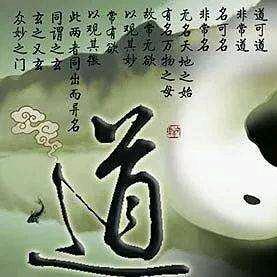 道可道
非常道
名可名
非常名
无名天地之始
有名万物之母
故常无欲
以观其妙
常有欲
以观其徼
此两者同出而异名
同谓之玄
玄之又玄
众妙之门
道